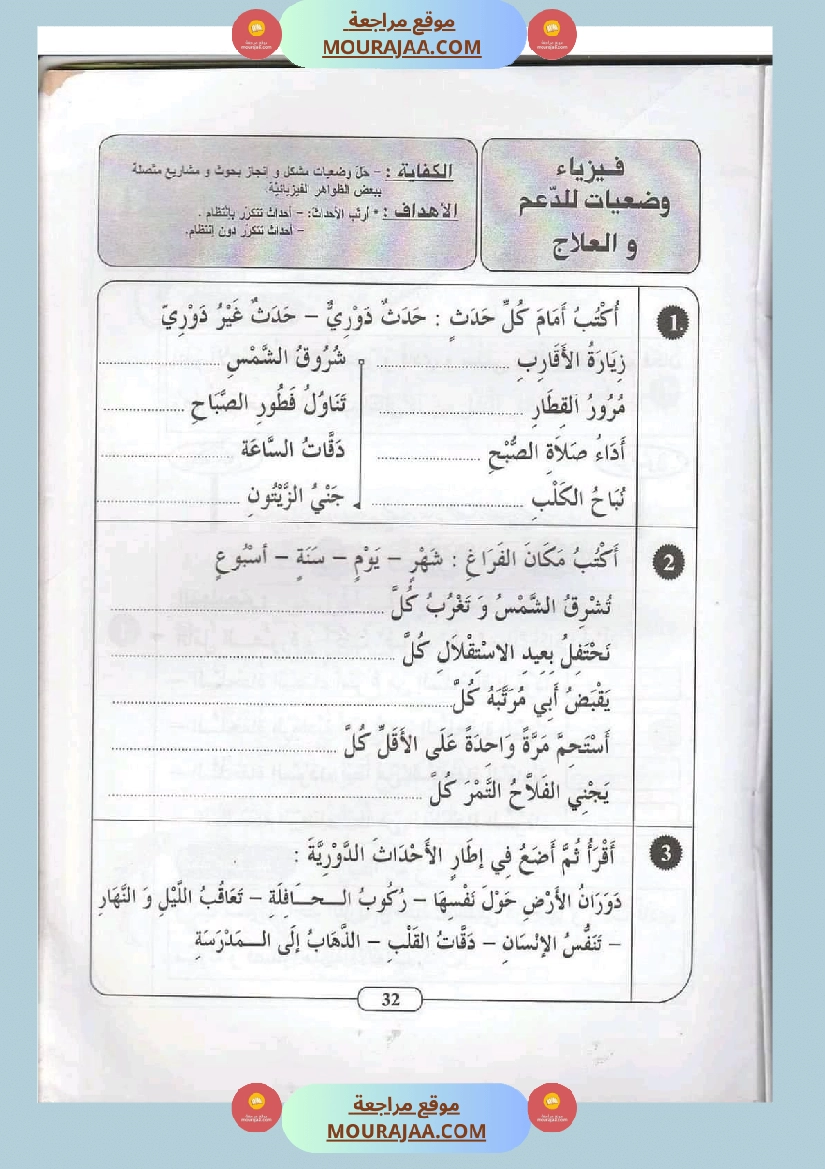 موقع مراجعة
MOURAJAA.COM
فيزياء
وضعيات للدّعم
و العلاج
الكفاية : - حلّ وضعيات مشكل و إنجاز بحوث و مشاريع متّصلة
ببعض الظواهر الفيزيائيّة
الأهداف : • أرتّب الأحداث: - أحداث تتكرّر بانتظام .
- أحداث تتكرّر دون إنتظام.
1. أُكْتُبُ أَمَامَ كُلِّ حَدَثٍ : حَدَثٌ دَوْرِيٌّ – حَدَثٌ غَيْرُ دَوْرِيّ
زِيَارَةُ الأَقَارِبِ .......... شُرُوقُ الشَّمْسِ ..........
مُرُورُ القِطَارِ .......... تَنَاوُلُ فَطُورِ الصَّبَاحِ ..........
أَدَاءُ صَلاَةِ الصُّبْحِ .......... دَقَّاتُ السَّاعَة ..........
نُبَاحُ الكَلْبِ .......... جَنْيُ الزَّيْتُونِ ..........
2 أَكْتُبُ مَكَانَ الفَرَاغِ : شَهْرٍ – يَوْمٍ – سَنَةٍ – أسْبُوعٍ
تُشْرِقُ الشَّمْسُ وَ تَغْرُبُ كُلَّ ..........
نَحْتَفِلُ بِعِيدِ الاسْتِقْلاَلِ كُلَّ ..........
يَقْبَضُ أَبِي مُرَتَّبَهُ كُلَّ ..........
أَسْتَحِمَّ مَرَّةً وَاحِدَةً عَلَى الأَقَلِّ كُلَّ ..........
يَجْنِي الفَلاَّحُ التَّمْرَ كُلَّ ..........
3 أَقْرَأُ ثُمَّ أَضَعُ فِي إطَارٍ الأَحْدَاثَ الدَّوْرِيَّةَ :
دَوَرَانُ الأَرْضِ حَوْلَ نَفْسِهَا – رُكُوبُ الحَافِلَةِ – تَعَاقُبُ اللَّيْلِ وَ النَّهَارِ
– تَنَفُّسُ الإنْسَانِ – دَقَّاتُ القَلْبِ – الذَّهَابُ إلَى المَدْرَسَةِ
32
موقع مراجعة
MOURAJAA.COM